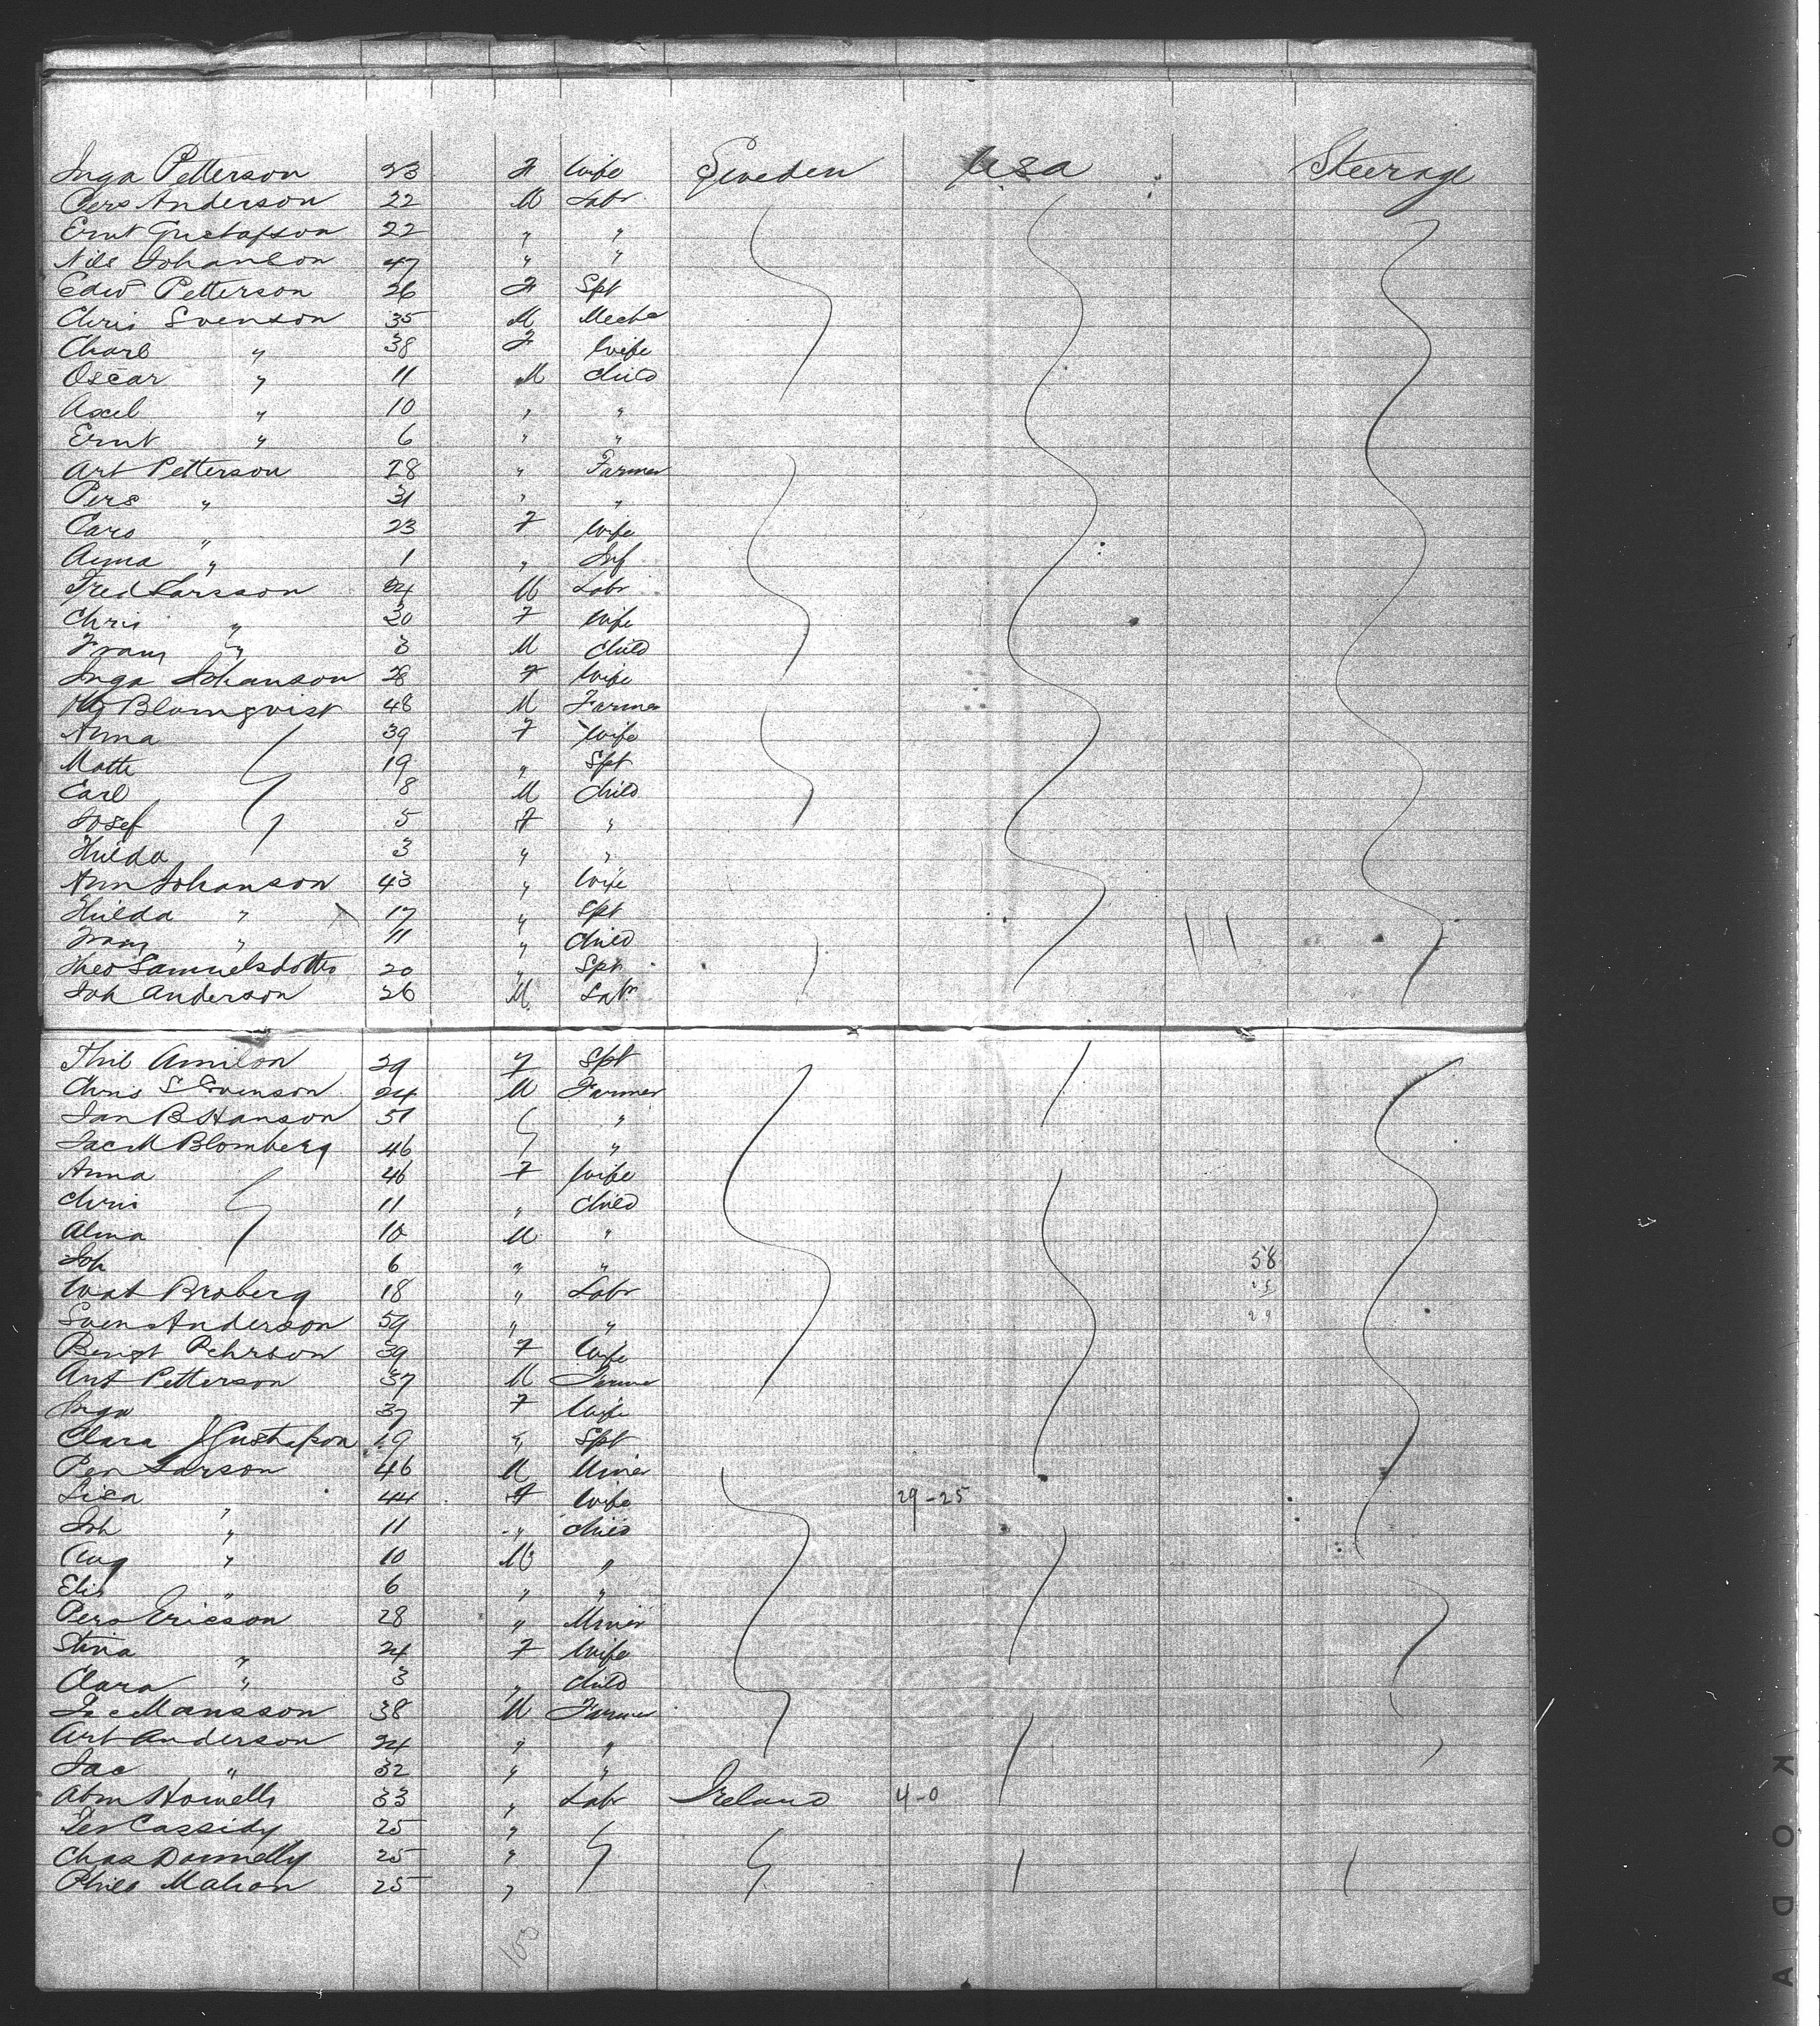 Inga Petterson 23 F Wife Sweden Usa Steerage
Pers Anderson 22 M Labr
Ernt Gustafson 22 " "
Nils Johanson 47 " "
Edw Petterson 26 F Spt
Chris Svenson 35 M Mecha
Charl " 38 F Wife
Oscar " 11 M Child
Axel " 10 " "
Ernt " 6 " "
Art Petterson 28 " Farmer
Pers " 31 " "
Caro " 23 F Wife
Anna " 1 " Inf
Fred Larsson 24 M Labr
Chris " 20 F Wife
Franz " 3 M Child
Inga Johanson 28 F Wife
Blomqvist 48 M Farmer
Anna 39 F Wife
Matte 19 " Spt
Carl 8 M Child
Josef 5 F "
Hilda 3 " "
Ann Johanson 43 " Wife
Hilda " 17 " Spt
Franz " 11 " Child
Theo Samuelsdotter 20 " Spt
Joh Anderson 26 M Labr
Amilon 29 F Spt
Chris S Svenson 24 M Farmer
Jan B Hanson 51 "
Jac M Blomberg 46 "
Anna 46 F Wife
Chris 11 " Child
Alma 10 M "
Joh 6 " " 58
Broberg 18 " Labr 29
Sven Anderson 59 " " 29
Bengt Pehrson 39 F Wife
Ant Petterson 37 M Farmer
Inga 37 F Wife
Clara J Gustafson 19 " Spt
Per Larson 46 M Miner
Lisa " 44 F Wife 29-25
Joh " 11 " Child
Aug " 10 M "
Elis " 6 " "
Pers Ericson 28 " Miner
Stina " 24 F Wife
Clara " 3 " Child
Jac Mansson 38 M Farmer
Art Anderson 24 " "
Jac " 32 " "
Abm Howells 33 " Labr Ireland 4-0
Cassidy 25 "
Chas Donnelly 25 "
Philo Mahon 25 "
100
KODA